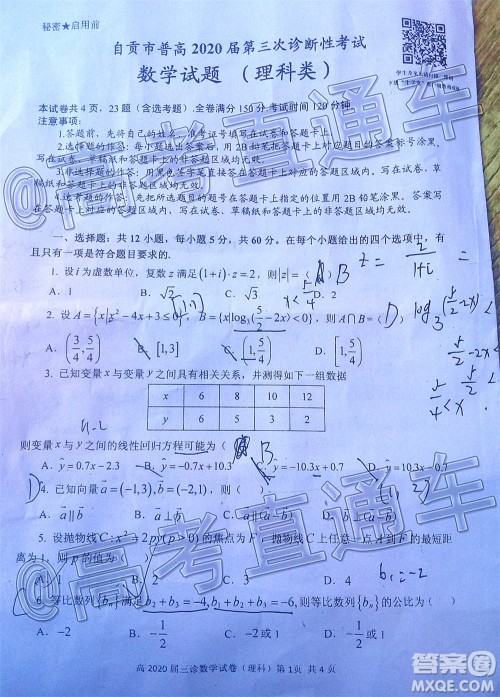 秘密★启用前
自贡市普高 2020 届第三次诊断性考试
数学试题 (理科类)
本试卷共 4 页，23 题（含选考题）.全卷满分 150 分.考试时间 120 分钟
注意事项：
1.答题前，先将自己的姓名、准考证号填写在答题卡上.
2.选择题的作答：每小题选出答案后，用 2B 铅笔把答题卡上对应题目的答案标号涂黑，
写在试卷、草稿纸和答题卡上的非答题区域均无效.
3.非选择题的作答：用黑色签字笔直接答在答题卡上对应的答题区域内.写在试卷、草
稿纸和答题卡上的非答题区域均无效.
4.选考题的作答：先把所选题目的题号在答题卡上指定的位置用 2B 铅笔涂黑. 答案写
在答题卡上对应的答题区域内，写在试卷、草稿纸和答题卡上的非答题区域均无效.
一、选择题：共 12 小题，每小题 5 分，共 60 分。在每个小题给出的四个选项中，有
且只有一项是符合题目要求的.
1. 设 i 为虚数单位，复数 z 满足 (1+i)·z=2，则|z|=（ ） B z=2/(1+i)=
A．1 B．√2 C．√3 D．2
2. 设 A={x|x²-4x+3≤0}，B={x|log₃(5/2-2x)<0}，则 A∩B=（ D ） log₃(5/2-2x)<
A．(3/4,5/4) B．[1,3] C．(1,5/4) D．[1,5/4) 5/2-2x<
3. 已知变量 x 与变量 y 之间具有相关关系，并测得如下一组数据
x 6 8 10 12
y 6 5 3 2
则变量 x 与 y 之间的线性回归方程可能为（ ） B
A．ŷ=0.7x-2.3 B．ŷ=-0.7x+10.3 C．ŷ=-10.3x+0.7 D．ŷ=10.3x-0.7
4. 已知向量 a=(-1,3), b=(-2,1)，则（ ）
A．a∥b B．a⊥b C．a∥(a-b) D．a⊥(a-b)
5. 设抛物线 C:x²=2py(p>0)的焦点为 F，抛物线 C 上任意一点 A 到 F 的最短距
离为 1，则 p 的值为（ ）
A．1 B．2 C．3 D．4 b₁=-2
6. 等比数列{bₙ}满足 b₂+b₃=-4, b₁+b₂+b₃=-6，则等比数列{bₙ}的公比为（ ）
A．-2 B．-1/2 C．-2 或 1 D．-1/2 或 1
高 2020 届三诊数学试卷（理科）第 1页 共 4 页
@高考直通车
@高考直通车